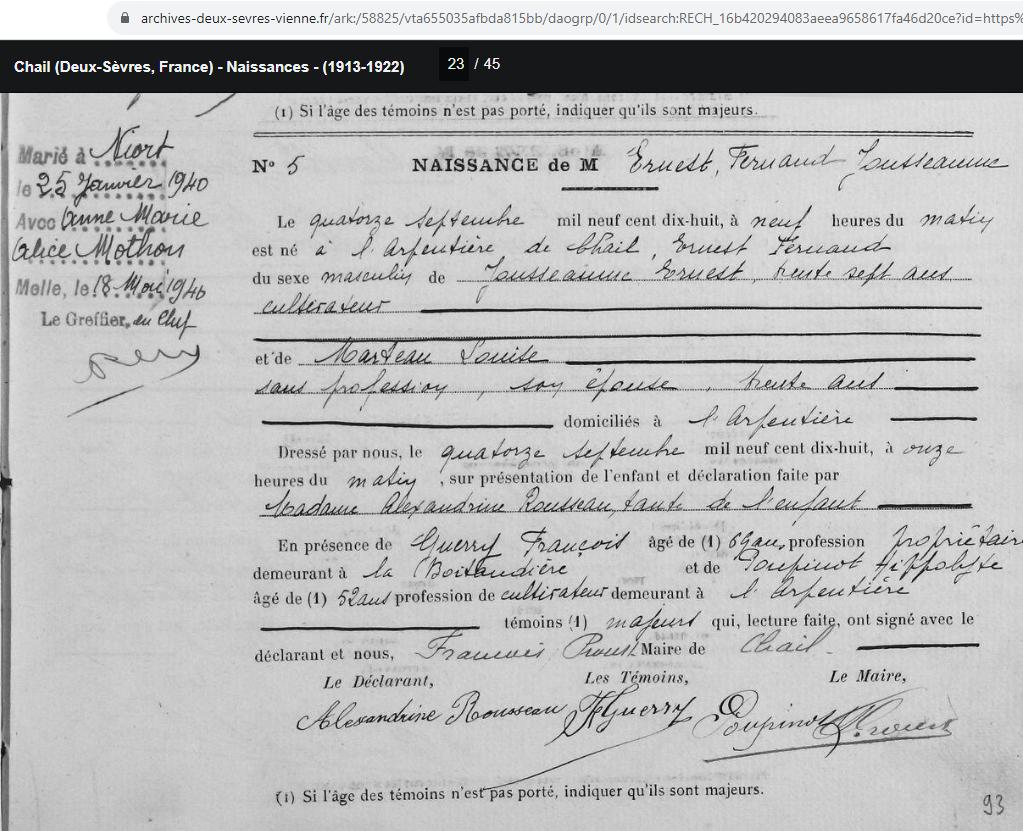 archives-deux-sevres-vienne.fr/ark:/58825/vta655035afbda815bb/daogrp/0/1/idsearch:RECH_16b420294083aeea9658617fa46d20ce?id=https%
Chail (Deux-Sèvres, France) - Naissances - (1913-1922) 23 / 45
(1) Si l'âge des témoins n'est pas porté, indiquer qu'ils sont majeurs.
Marié à Niort
le 25 Janvier 1940
Avec Anne Marie
Alice Mothon
Melle, le 18 Mai 1946
Le Greffier, en Chef
N° 5 NAISSANCE de M Ernest, Fernand Jousseaume
Le quatorze septembre mil neuf cent dix-huit, à neuf heures du matin
est né à l'Arpentière de Chail, Ernest Fernand
du sexe masculin de Jousseaume Ernest, trente sept ans
cultivateur
et de Marteau Louise
sans profession, son épouse, trente ans
domiciliés à l'Arpentière
Dressé par nous, le quatorze septembre mil neuf cent dix-huit, à onze
heures du matin, sur présentation de l'enfant et déclaration faite par
Madame Alexandrine Rousseau, tante de l'enfant
En présence de Guerry François âgé de (1) 69 ans, profession propriétaire
demeurant à la Boitaudière et de Poupinot Hippolyte
âgé de (1) 52 ans profession de cultivateur demeurant à l'Arpentière
témoins (1) majeurs qui, lecture faite, ont signé avec le
déclarant et nous, François Proust Maire de Chail.
Le Déclarant, Les Témoins, Le Maire,
Alexandrine Rousseau F Guerry Poupinot F. Proust
(1) Si l'âge des témoins n'est pas porté, indiquer qu'ils sont majeurs.
93